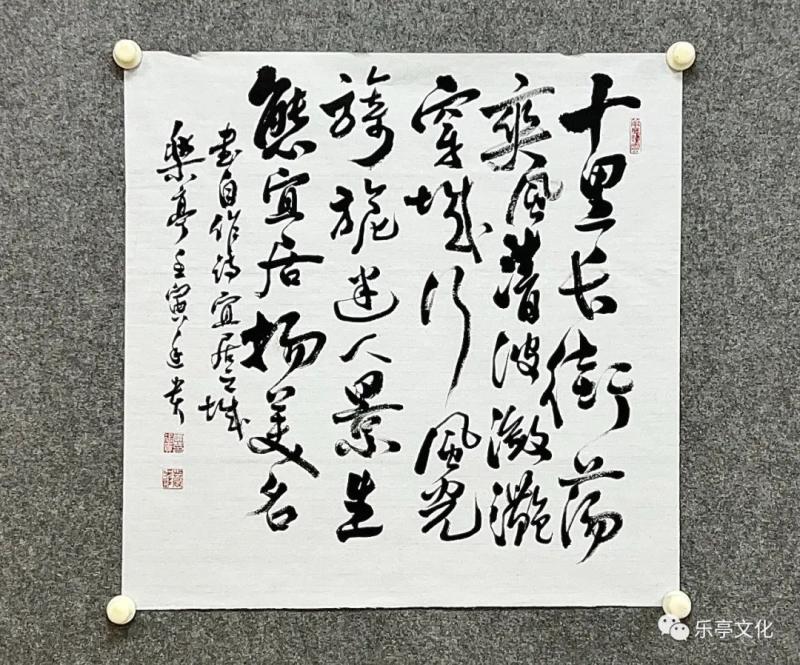 十里长街荡
爽风清波潋滟
穿城行风光
旖旎迷人景生
态宜居扬美名
书自作诗宜居之城
乐亭壬寅年
乐亭文化